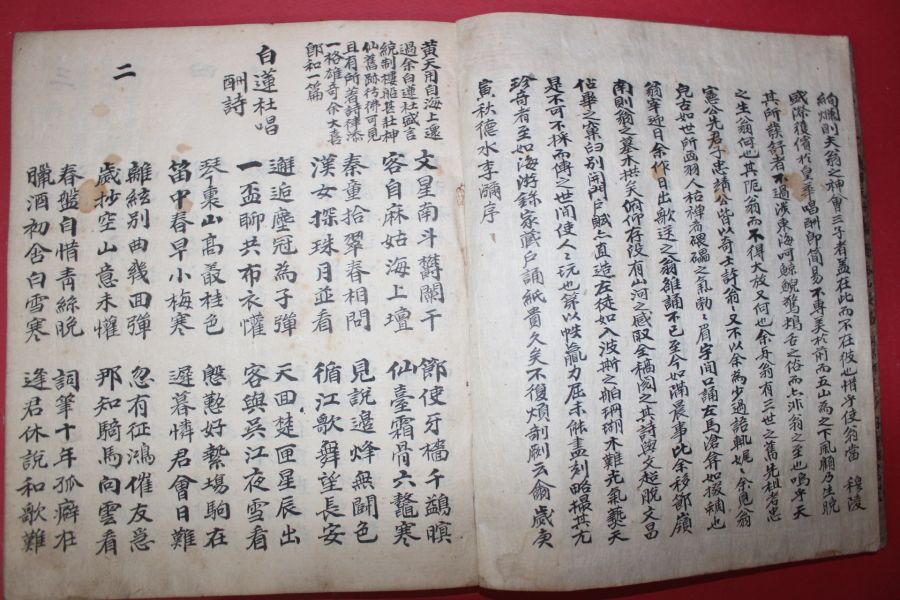 絢爛則夫翁之神會三子者盖在此而不在彼也惜乎使翁當 穆陵
盛際復儐於皇華唱酬即簡易不專美於前而五山為之下風顧乃生脫
其所發舒者不過淺東海呵鯨鯢驚舌之俗而上非翁之至也嗚乎天
之生翁何也其阨翁而不得大放又何也余與翁有三世之舊先祖考忠
憲公先君子忠靖公皆以奇士許翁又不以余為少過語輒娓々余見翁
皃古如世所画羽人枯禅者磈礧之氣勃々眉宇間口誦左馬滄弇如掇蜩也
翁宰迎日余作日出歌送之翁雒誦不已至今如滿晨事比余移節嶺
南則翁之墓木拱矣俯仰存没有山河之感取全稿閱之其詩與文超脫文昌
佔畢之窠臼別開門戶賦上直造左徒如入波斯之舶珊瑚木難光氣爇天
是不可不採而傳之世間使人々玩也第以帙力屈未能盡刻略掃其尤
珍奇者至如海游錄家藏戶誦紙貴久矣不復煩剞劂云爾歲庚
寅秋德水李瀰序
黄天用自海上還
過余白蓮社盛言
統制樓船甚壯神
仙舊跡彷彿可見
且有所著詩律添
一格雄奇余大喜
即和一篇
白蓮社唱
酬詩
二
文星南斗欝闌干 節使牙檣千鷁暝
容自麻姑海上壇 仙臺霜骨六鼇寒
秦童拾翠春相問 見說邊烽無闘色
漢女探珠月並看 循江歌舞望長安
邂逅塵冠為子彈 天回楚匣星辰出
一盃聊共布衣懽 客與吳江夜雪看
琴裏山高叢桂色 慇懃好縶場駒在
笛中春早小梅寒 遲暮憐君會日難
離絃別曲幾面彈 忽有征鴻催友急
歲抄空山意未懽 那知騎馬向雲看
春盤自惜靑絲晩 詞筆十年孤癖在
臘酒初舍白雪寒 逢君休說和歌難